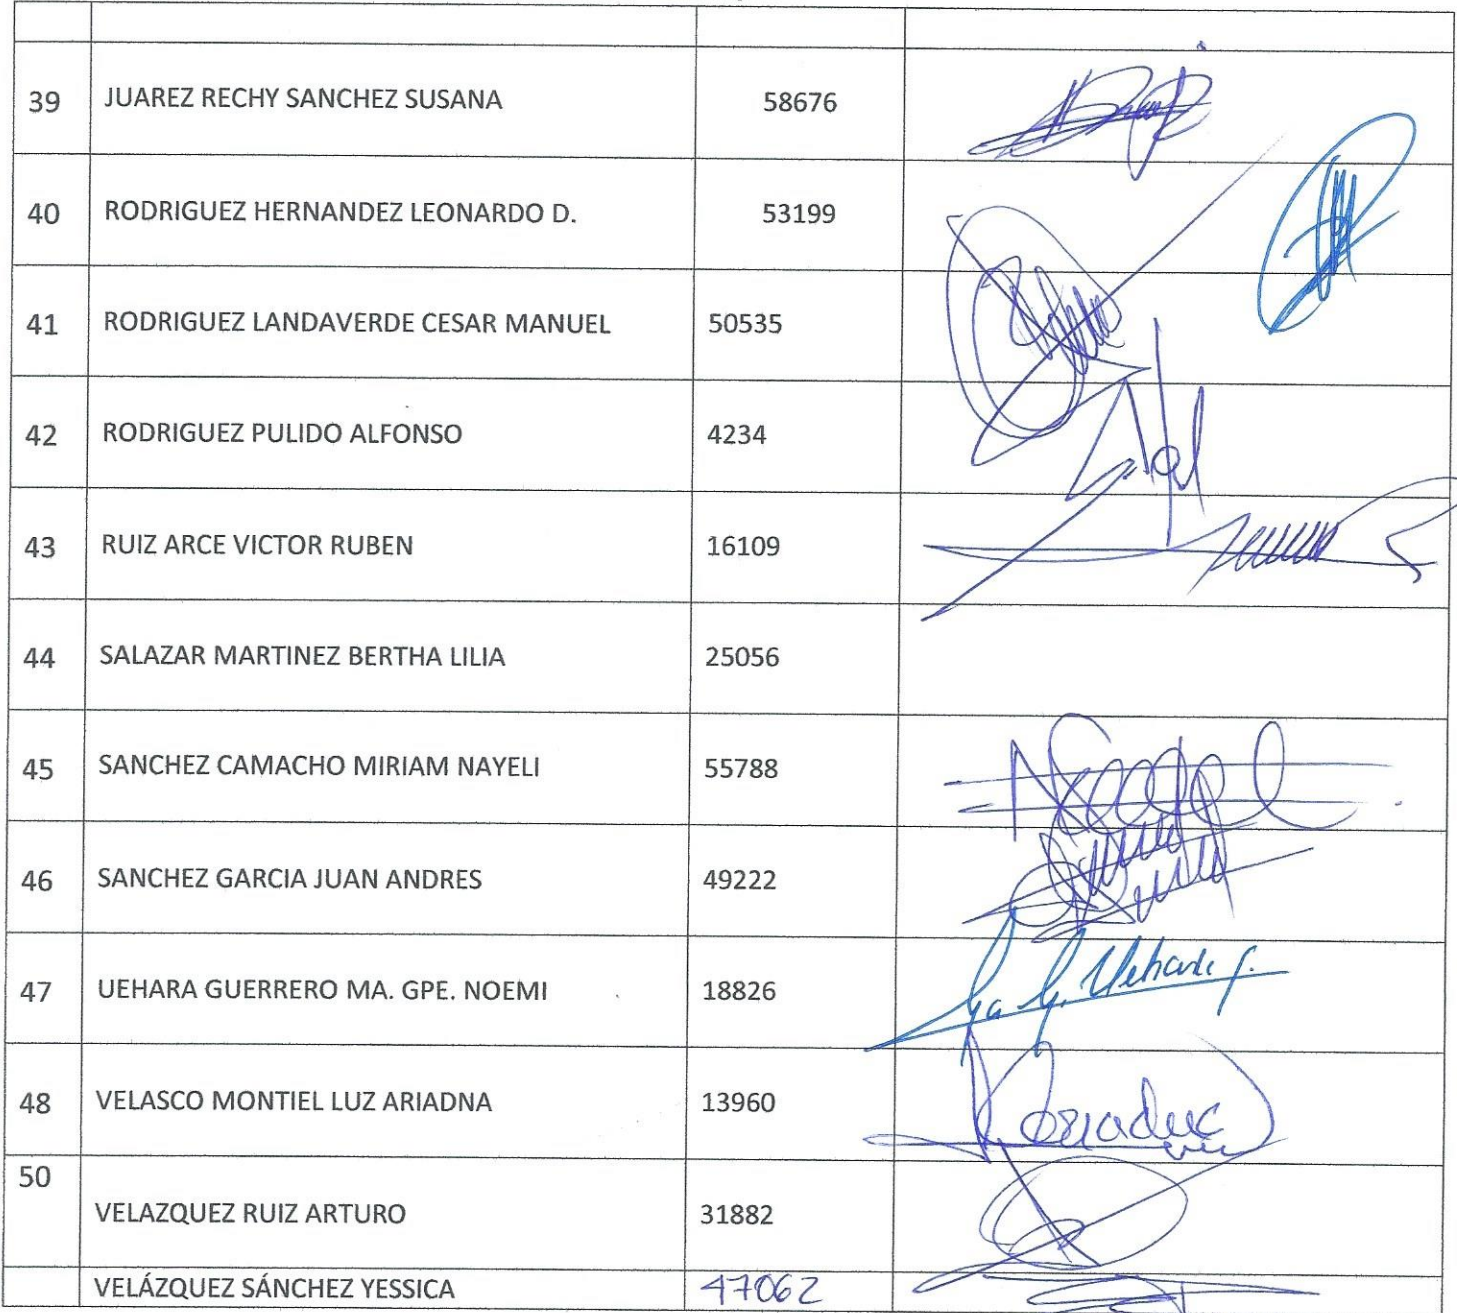 39 JUAREZ RECHY SANCHEZ SUSANA 58676
40 RODRIGUEZ HERNANDEZ LEONARDO D. 53199
41 RODRIGUEZ LANDAVERDE CESAR MANUEL 50535
42 RODRIGUEZ PULIDO ALFONSO 4234
43 RUIZ ARCE VICTOR RUBEN 16109
44 SALAZAR MARTINEZ BERTHA LILIA 25056
45 SANCHEZ CAMACHO MIRIAM NAYELI 55788
46 SANCHEZ GARCIA JUAN ANDRES 49222
47 UEHARA GUERRERO MA. GPE. NOEMI 18826
48 VELASCO MONTIEL LUZ ARIADNA 13960
50 VELAZQUEZ RUIZ ARTURO 31882
VELÁZQUEZ SÁNCHEZ YESSICA 47062